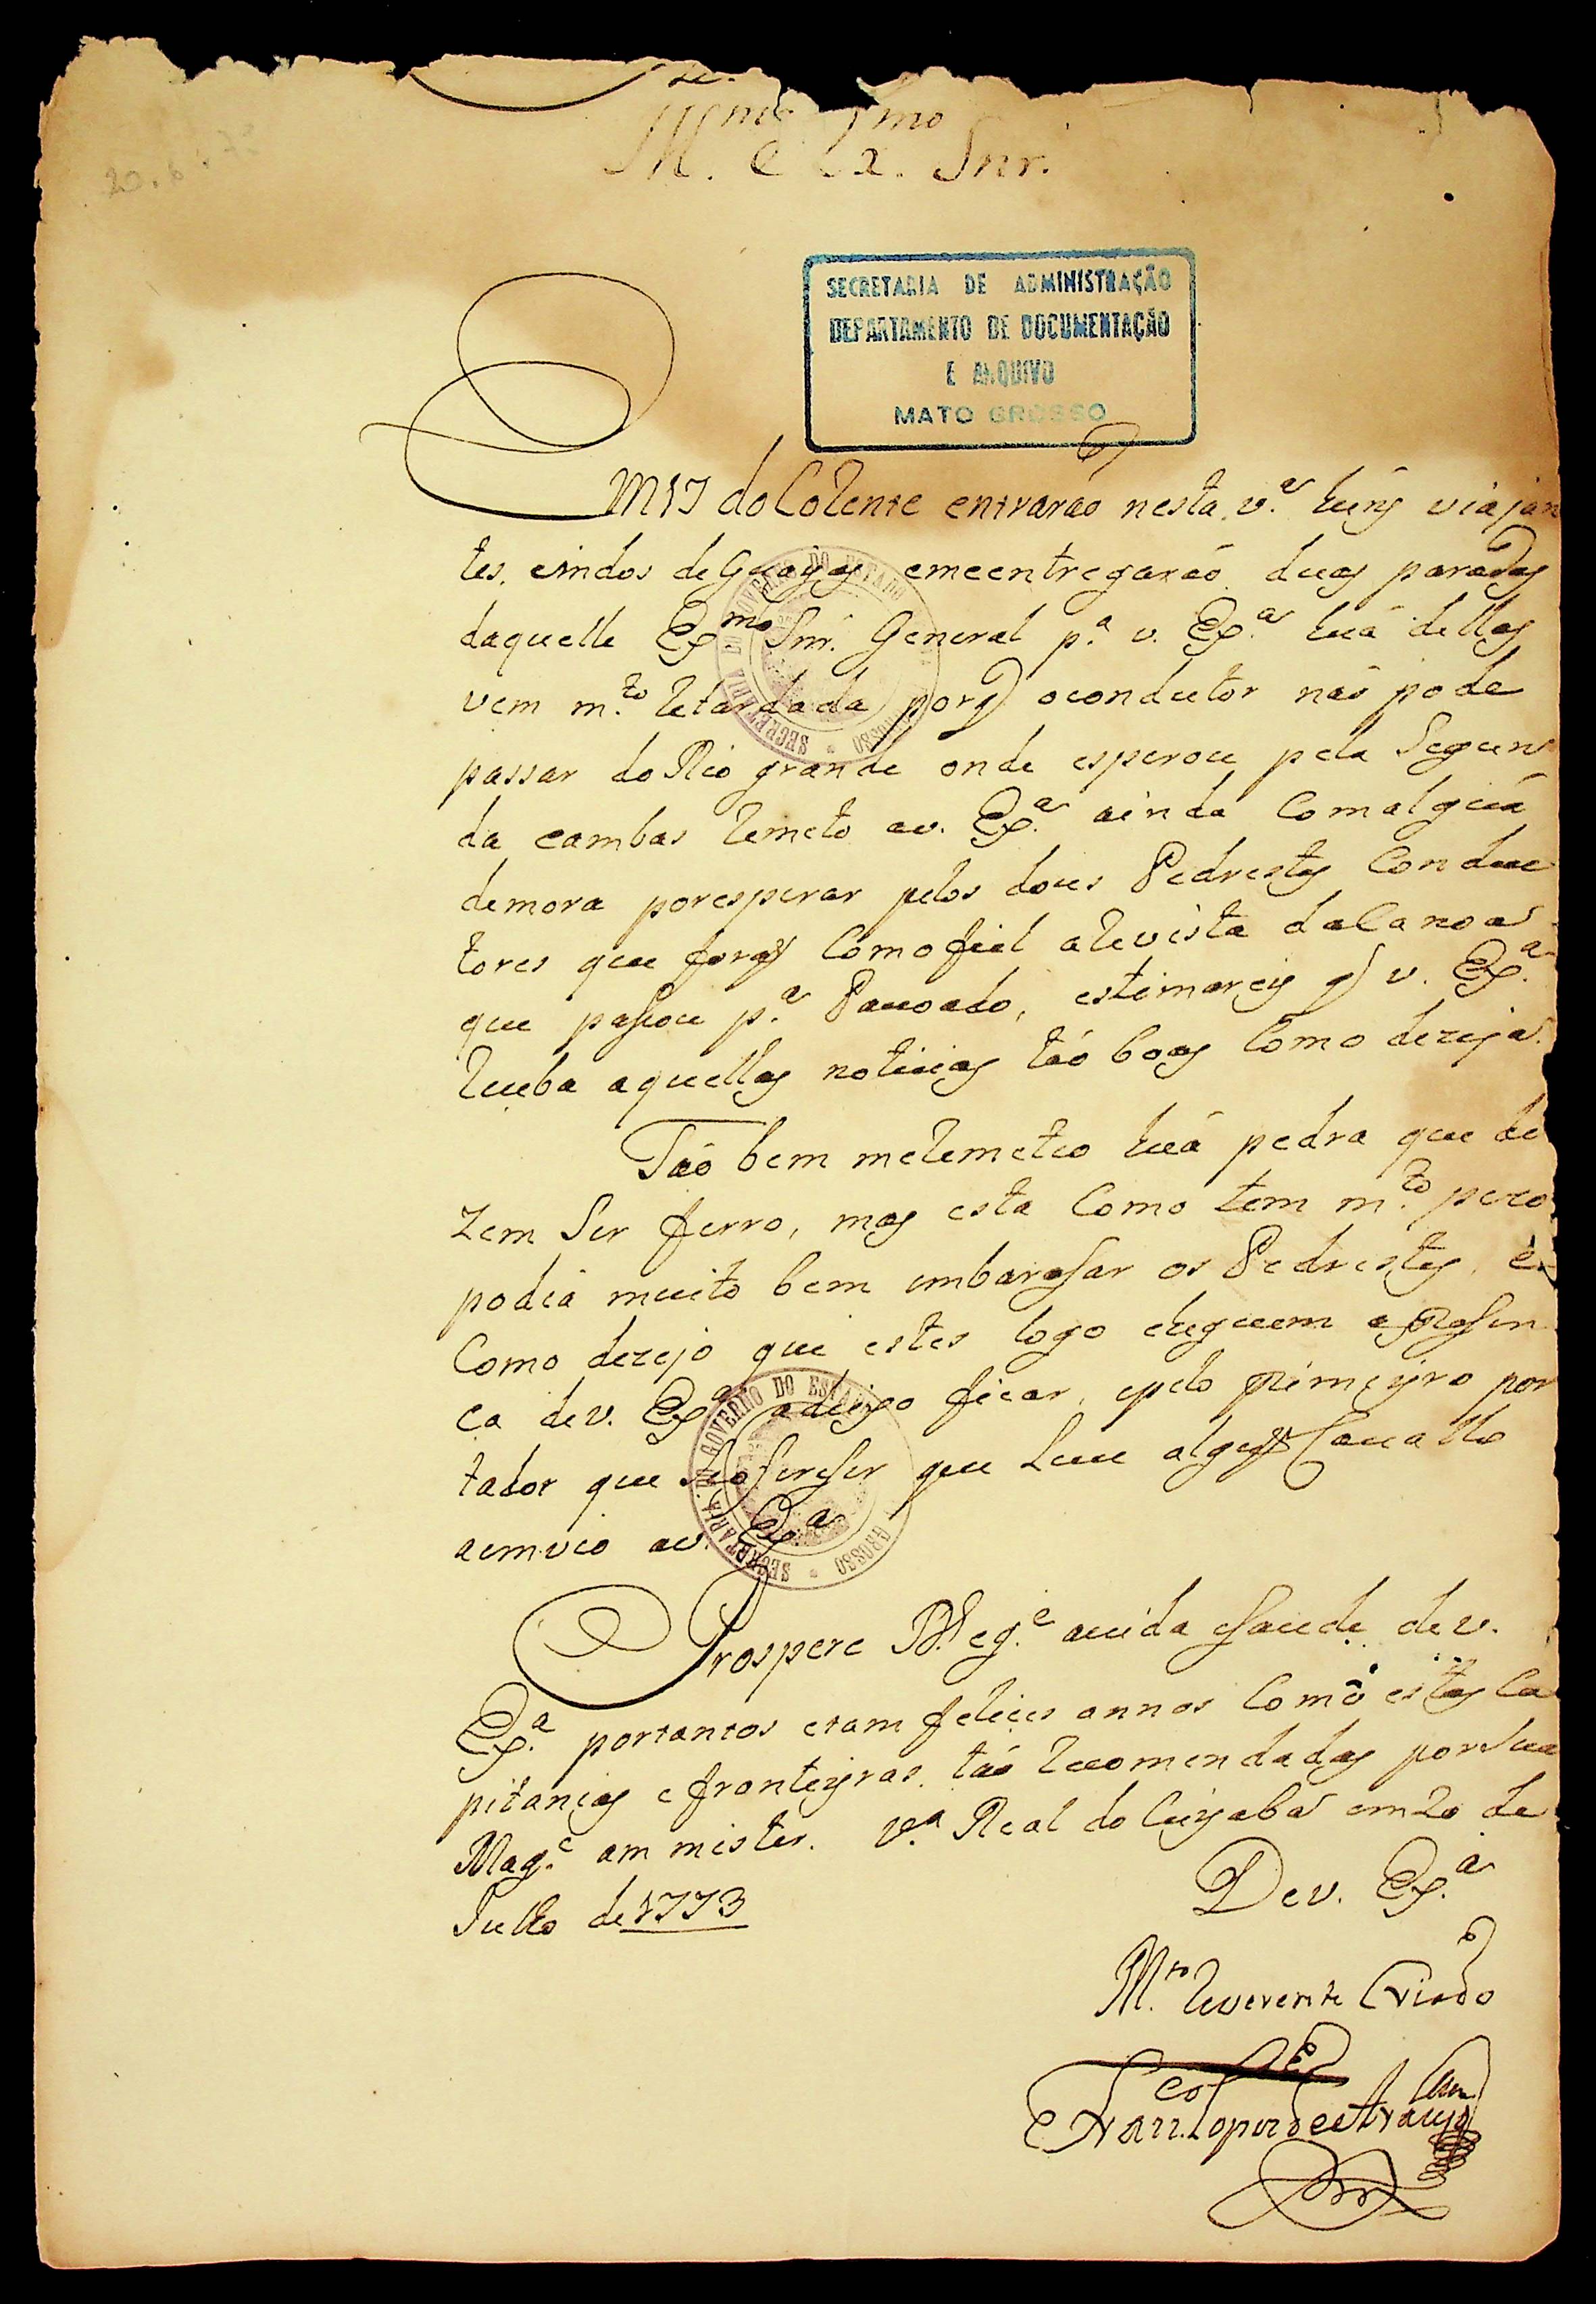 Ill.mo e Ex.mo Snr.
SECRETARIA DE ADMINISTRAÇÃO
DEPARTAMENTO DE DOCUMENTAÇÃO
E ARQUIVO
MATO GROSSO
Em 17 do Corente entrarão nesta v.ª huns viajan
tes, vindos de Goayas emeentregarão duas paradas
daquelle Ex.mo Snr. General p.ª v. Ex.ª huá dellas
vem m.to Retardada porq̃ ocondutor não pode
passar do Rio grande onde esperou pela Segun
da eambas Remeto av. Ex.ª ainda Comalguá
demora poresperar pelos dous Pedrestes Conduc
tores que Comofiel aRevista daCanoa
que passou p.ª Pauoado, estimarey q̃ v. Ex.ª
Reseba aquellas noticias tão boas Como dezeja.
Tão bem meRemeteo huá pedra que di
zem Ser ferro, mas esta Como tem m.to pezo
podia muito bem embarasar os Pedrestes, e
Como dezejo que estes logo cheguem apresen
ça dev. Ex.ª adeixo ficar, epelo primeyro por
tador que Seoferesser que Leve Cauallo
aemvio av. Ex.ª
Prospere D.s eg.e auida esaude dev.
Ex.ª portantos etam felices annos Como estas Ca
pitanias efronteyras tão Recomendadas porSua
Mag.e am mister. V.ª Real do Cuyaba em 20 de
Julho de 1773
Dev. Ex.ª
M.to Reverente Criado
Fran.co Lopes de Araujo
SECRETARIA DO GOVERNO DO ESTADO
GROSSO
SECRETARIA DO GOVERNO DO ESTADO
GROSSO